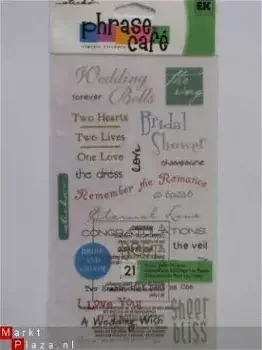 sticko
phrase
café
EK
Wedding
Bells
the ring
forever
Two Hearts
Two Lives
One Love
Bridal
Shower
love
champagne
the dress
Remember the Romance
a toast
Eternal Love
CONGRATULATIONS
the veil
BRIDE AND
GROOM
21
I Love You
A Wedding Wish
sheer
bliss
Markt
Plaza.nl